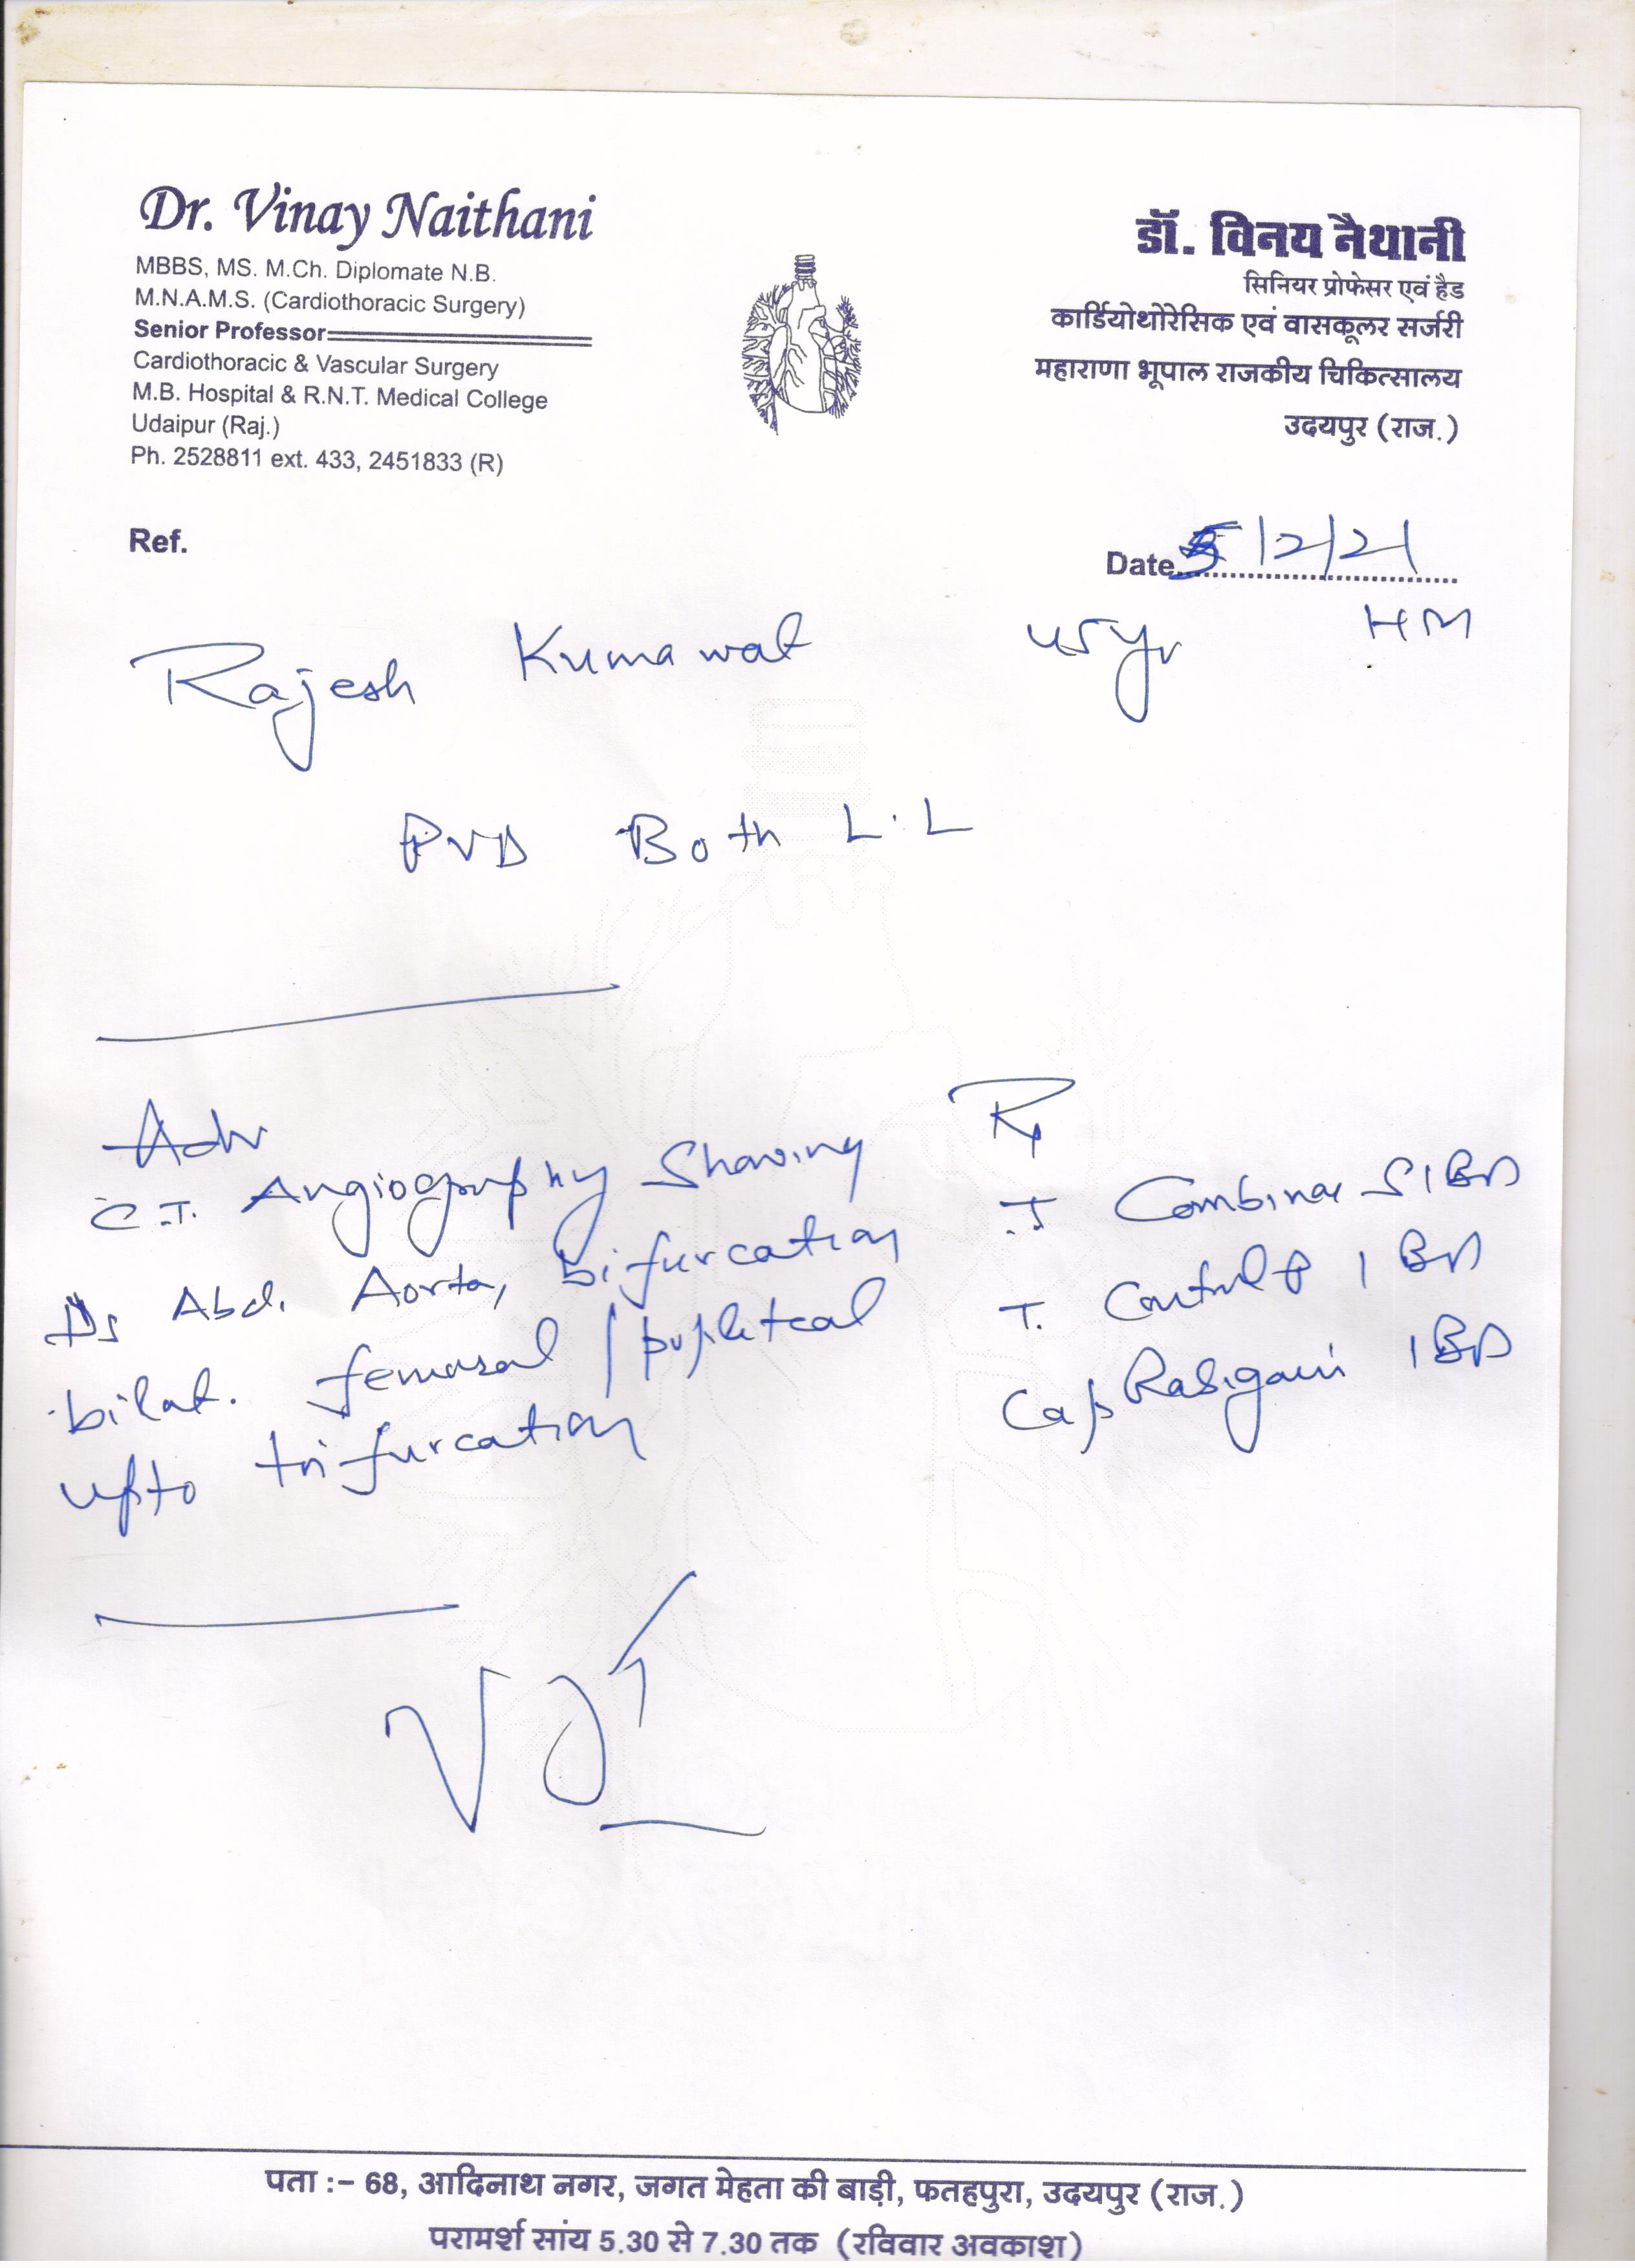 Dr. Vinay Naithani
MBBS, MS. M.Ch. Diplomate N.B.
M.N.A.M.S. (Cardiothoracic Surgery)
Senior Professor
Cardiothoracic & Vascular Surgery
M.B. Hospital & R.N.T. Medical College
Udaipur (Raj.)
Ph. 2528811 ext. 433, 2451833 (R)
डॉ. विनय नैथानी
सिनियर प्रोफेसर एवं हैड
कार्डियोथोरेसिक एवं वासकूलर सर्जरी
महाराणा भूपाल राजकीय चिकित्सालय
उदयपुर (राज.)
Ref.
Date 5/2/21
Rajesh Kumawat 45 yr HM
PVD Both L.L
Adv
C.T. Angiography Showing
Abd. Aorta, bifurcation
bilat. femoral / popliteal
upto trifurcation
Rx
T 1 BD
T. 1 BD
Cap 1 BD
पता :– 68, आदिनाथ नगर, जगत मेहता की बाड़ी, फतहपुरा, उदयपुर (राज.)
परामर्श सांय 5.30 से 7.30 तक (रविवार अवकाश)